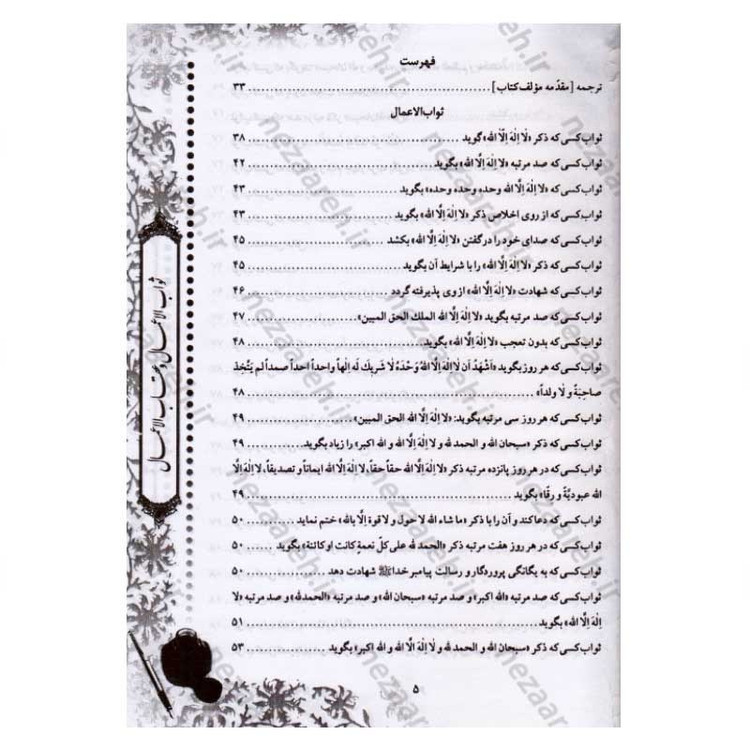 فهرست
ترجمه [مقدّمه مؤلف کتاب] ........ ۳۳
ثواب الاعمال
ثواب کسی که ذکر «لَا اِلهَ اِلَّا الله» گوید ........ ۳۸
ثواب کسی که صد مرتبه «لا اِلهَ اِلَّا الله» بگوید ........ ۴۲
ثواب کسی که «لا اِلهَ اِلَّا الله وحده وحده وحده» بگوید ........ ۴۳
ثواب کسی که از روی اخلاص ذکر «لا اِلهَ اِلَّا الله» بگوید ........ ۴۳
ثواب کسی که صدای خود را در گفتن «لا اِلهَ اِلَّا الله» بکشد ........ ۴۵
ثواب کسی که ذکر «لا اِلهَ اِلَّا الله» را با شرایط آن بگوید ........ ۴۵
ثواب کسی که شهادت «لا اِلهَ اِلَّا الله» از وی پذیرفته گردد ........ ۴۶
ثواب کسی که صد مرتبه بگوید «لا اِلهَ اِلَّا الله الملك الحق المبین» ........ ۴۷
ثواب کسی که بدون تعجب «لا اِلهَ اِلَّا الله» بگوید ........ ۴۸
ثواب کسی که هر روز بگوید «اَشْهَدُ اَن لَا اِلهَ اِلَّا اللهُ وَحْدَهُ لا شَرِیكَ لَه اِلهاً واحداً احداً صمداً لم یَتَّخِذ
صاحِبَةً و لا ولداً» ........ ۴۸
ثواب کسی که هر روز سی مرتبه بگوید: «لا اِلهَ اِلَّا الله الحق المبین» ........ ۴۹
ثواب کسی که ذکر «سبحان الله و الحمد لله و لا اِلهَ اِلَّا الله و الله اکبر» را زیاد بگوید ........ ۴۹
ثواب کسی که در هر روز پانزده مرتبه ذکر «لا اِلهَ اِلَّا الله حقاً حقاً، لا اِلهَ اِلَّا الله ایماناً و تصدیقاً، لا اِلهَ اِلَّا
الله عبودیّةً و رِقّاً» بگوید ........ ۴۹
ثواب کسی که دعا کند و آن را با ذکر «ما شاء الله لا حول و لا قوة اِلَّا بالله» ختم نماید ........ ۵۰
ثواب کسی که در هر روز هفت مرتبه ذکر «الحمد لله علی کلّ نعمةٍ کانت او کائنة» بگوید ........ ۵۰
ثواب کسی که به یگانگی پروردگار و رسالت پیامبر خدا ﷺ شهادت دهد ........ ۵۰
ثواب کسی که صد مرتبه «الله اکبر» و صد مرتبه «سبحان الله» و صد مرتبه «الحمدلله» و صد مرتبه «لا
اِلهَ اِلَّا الله» بگوید ........ ۵۱
ثواب کسی که ذکر «سبحان الله و الحمد لله و لا اِلهَ اِلَّا الله و الله اکبر» بگوید ........ ۵۳
۵
ثواب الاعمال و عقاب الاعمال
nezaareh.ir